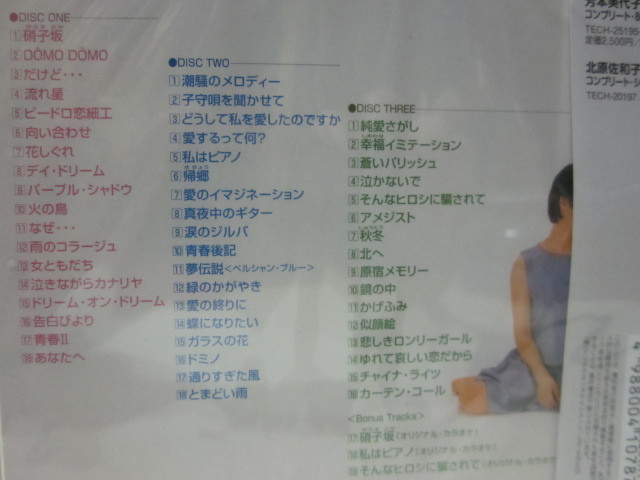 ●DISC ONE
1 硝子坂
2 DŌMO DŌMO
3 だけど・・・
4 流れ星
5 ビードロ恋細工
6 向い合わせ
7 花しぐれ
8 デイ・ドリーム
9 パープル・シャドウ
10 火の鳥
11 なぜ・・・
12 雨のコラージュ
13 女ともだち
14 泣きながらカナリヤ
15 ドリーム・オン・ドリーム
16 告白びより
17 青春II
18 あなたへ
●DISC TWO
1 潮騒のメロディー
2 子守唄を聞かせて
3 どうして私を愛したのですか
4 愛するって何?
5 私はピアノ
6 帰郷
7 愛のイマジネーション
8 真夜中のギター
9 涙のジルバ
10 青春後記
11 夢伝説<ペルシャン・ブルー>
12 緑のかがやき
13 愛の終りに
14 蝶になりたい
15 ガラスの花
16 ドミノ
17 通りすぎた風
18 とまどい雨
●DISC THREE
1 純愛さがし
2 幸福イミテーション
3 蒼いパリッシュ
4 泣かないで
5 そんなヒロシに騙されて
6 アメジスト
7 秋冬
8 北へ
9 原宿メモリー
10 鏡の中
11 かげふみ
12 似顔絵
13 悲しきロンリーガール
14 ゆれて哀しい恋だから
15 チャイナ・ライツ
16 カーテン・コール
<Bonus Tracks>
17 硝子坂(オリジナル・カラオケ)
18 私はピアノ(オリジナル・カラオケ)
19 そんなヒロシに騙されて(オリジナル・カラオケ)
芳本美代子
コンプリート・
TECH-25195
定価2,500円/
北原佐和子
コンプリート・シ
TECH-20197
4 988004 10787